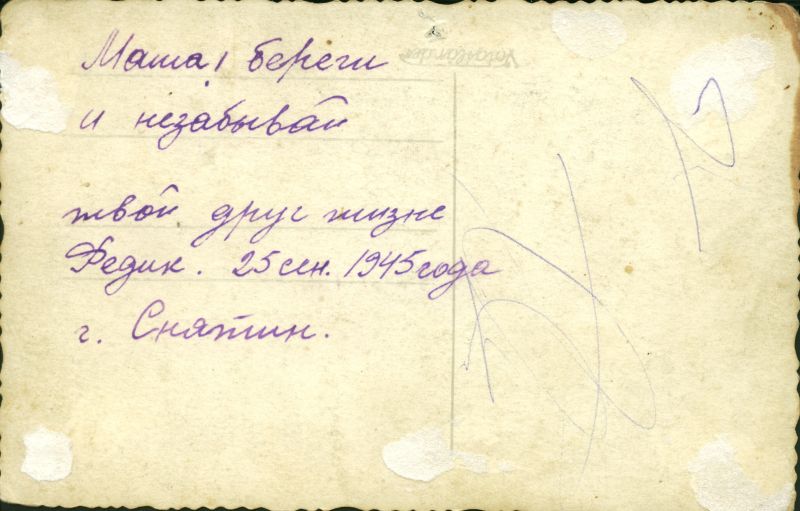 Маша, береги
и незабывай
твой друг жизне
Федик. 25 сен. 1945 года
г. Снятин.